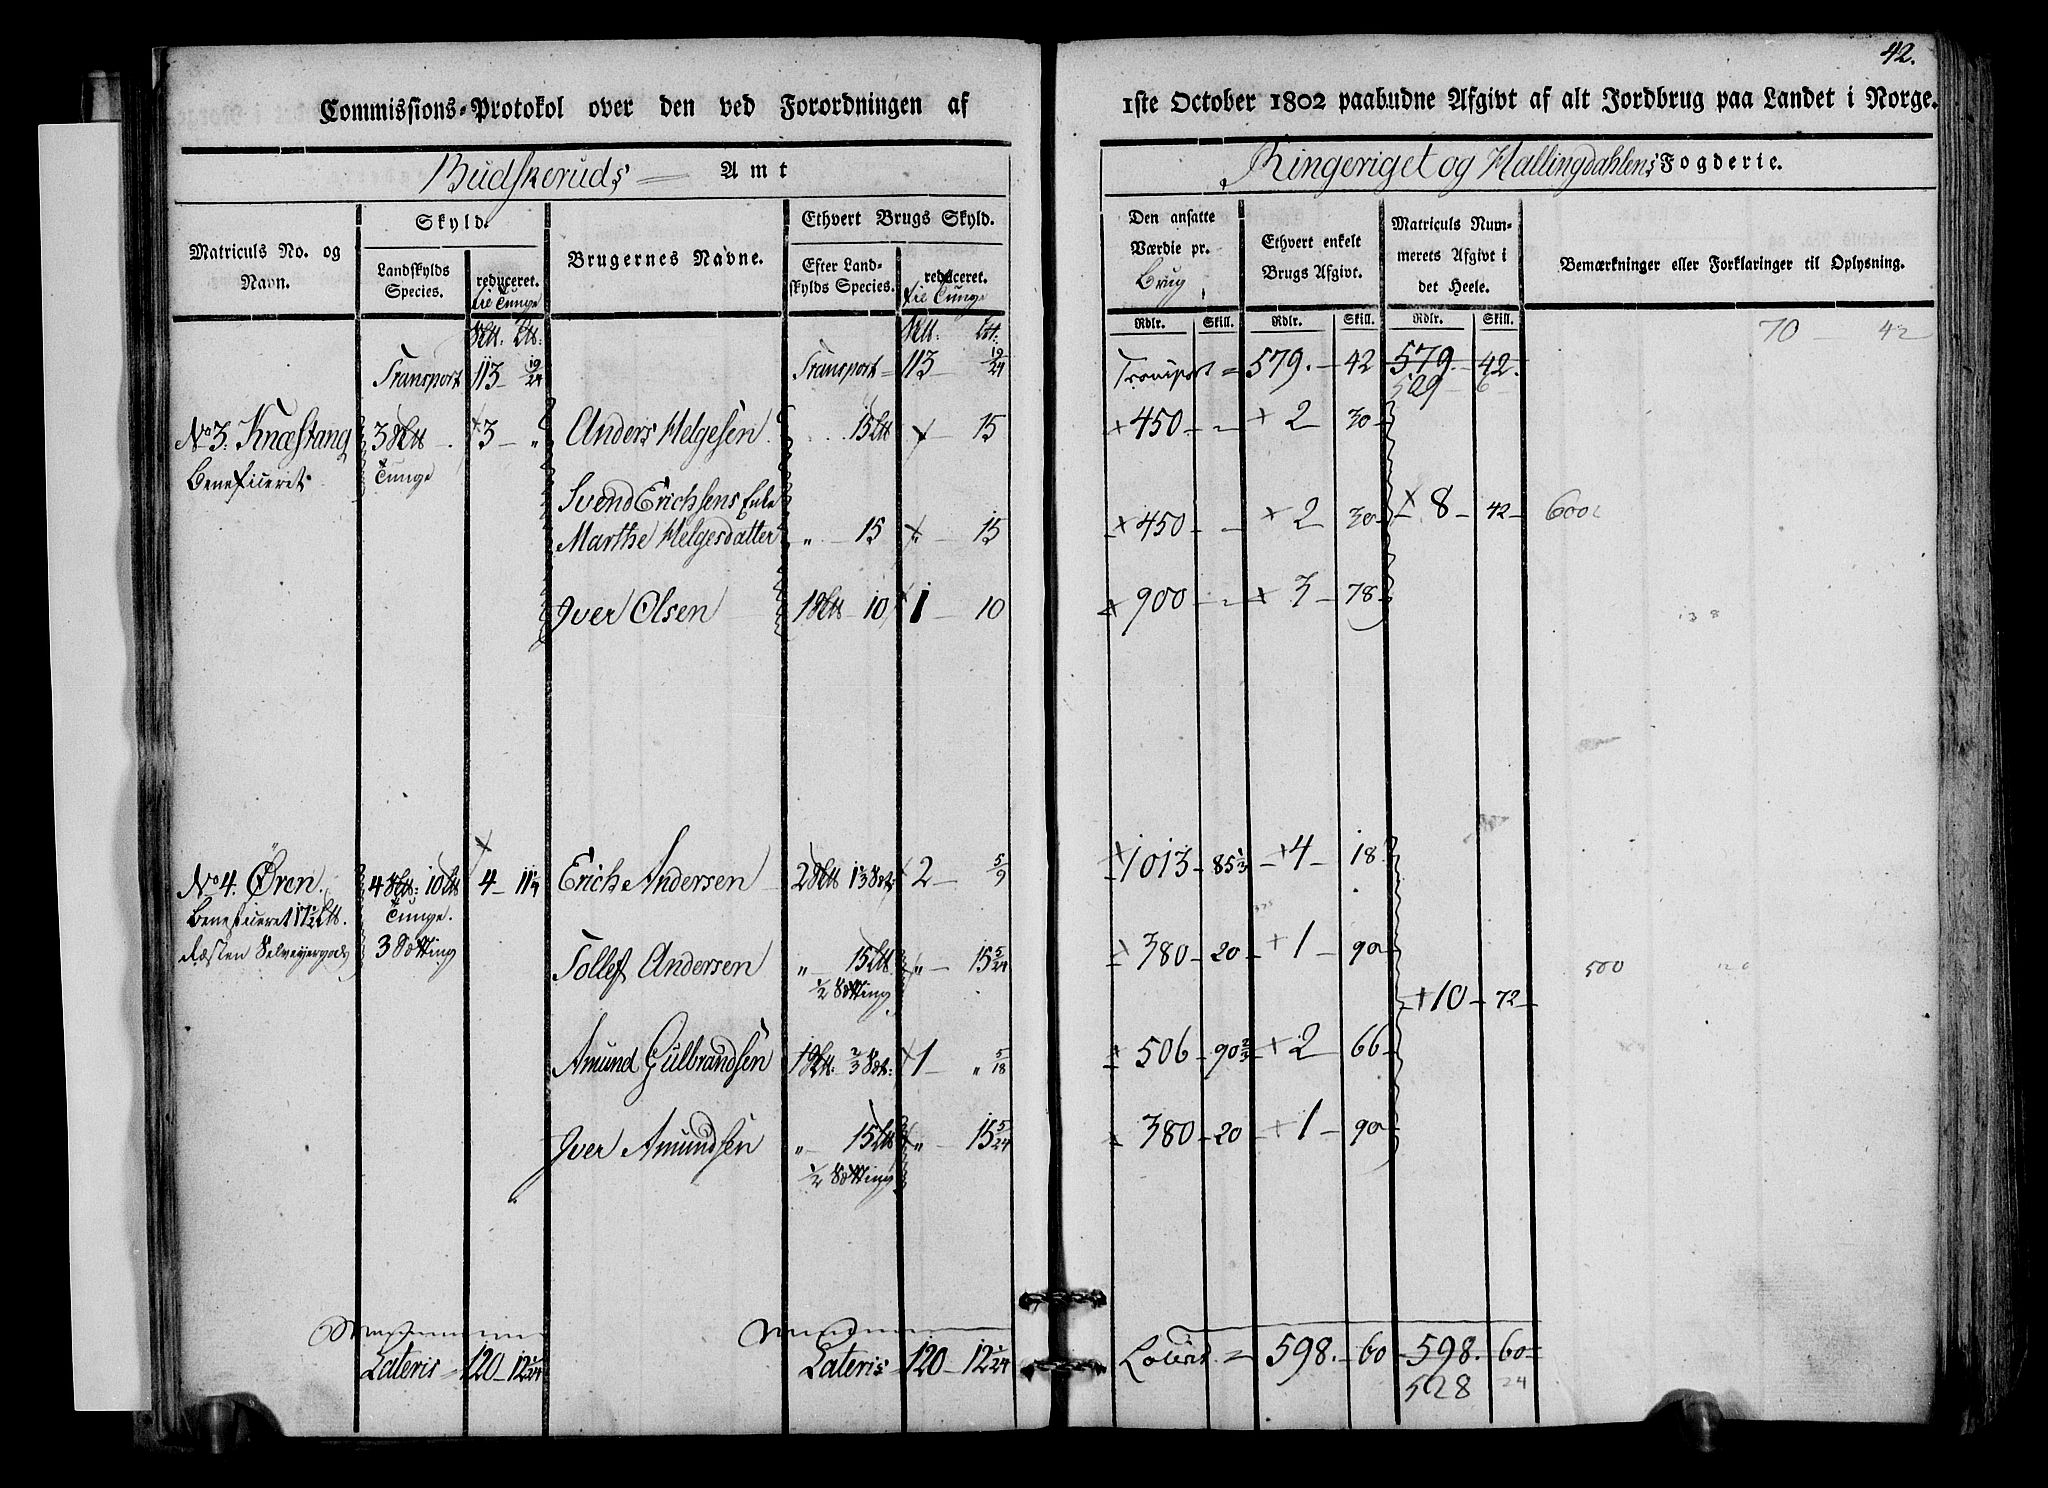 42.
Commissions-Protokol over den ved Forordningen af 1ste October 1802 paabudne Afgivt af alt Jordbrug paa Landet i Norge.
Budskeruds Amt
Ringeriget og Hallingdahlens Fogderie.
Matriculs No. og Navn.
Skyld.
Landskylds Species.
reduceret. til Tunge
Brugernes Navne.
Ethvert Brugs Skyld.
Efter Landskylds Species.
reduceret. til Tunge
Den ansatte Værdie pr. Brug
Ethvert enkelt Brugs Afgivt.
Matriculs Nummerets Afgivt i det Heele.
Bemærkninger eller Forklaringer til Oplysning.
Rdlr. Skill. Rdlr. Skill. Rdlr. Skill.
70 42
Transport 113 19/24 Transport 113 19/24 Transport 579. 42 579. 42.
509 6
No 3. Knæstang 3 3 " Anders Helgesen 15 15 450 2 30
Beneficeret Tunge
Svend Erichsens Enke
Marthe Helgesdatter " 15 " 15 450 2 30 8 42 600
Iver Olsen 1 10 1 10 900 3 78
138
No 4. Ören 4 10 4 11 1/4 Erich Andersen 2 2 5/9 1013 85 1/3 4 18
Beneficeret Tunge.
Resten Selveyergods 3 Sætting
Tollef Andersen " 15 " 15 5/24 380 20 1 90
1/2 Sætting
500 120
10 72
Amund Gulbrandsen 1 2/3 1 " 5/18 506 90 2/3 2 66
Iver Amundsen " 15 " 15 5/24 380 20 1 90
1/2 Sætting
Lateris 120 12 1/24 Lateris 120 12 1/24 Lateris 598. 60 598. 60
528 24